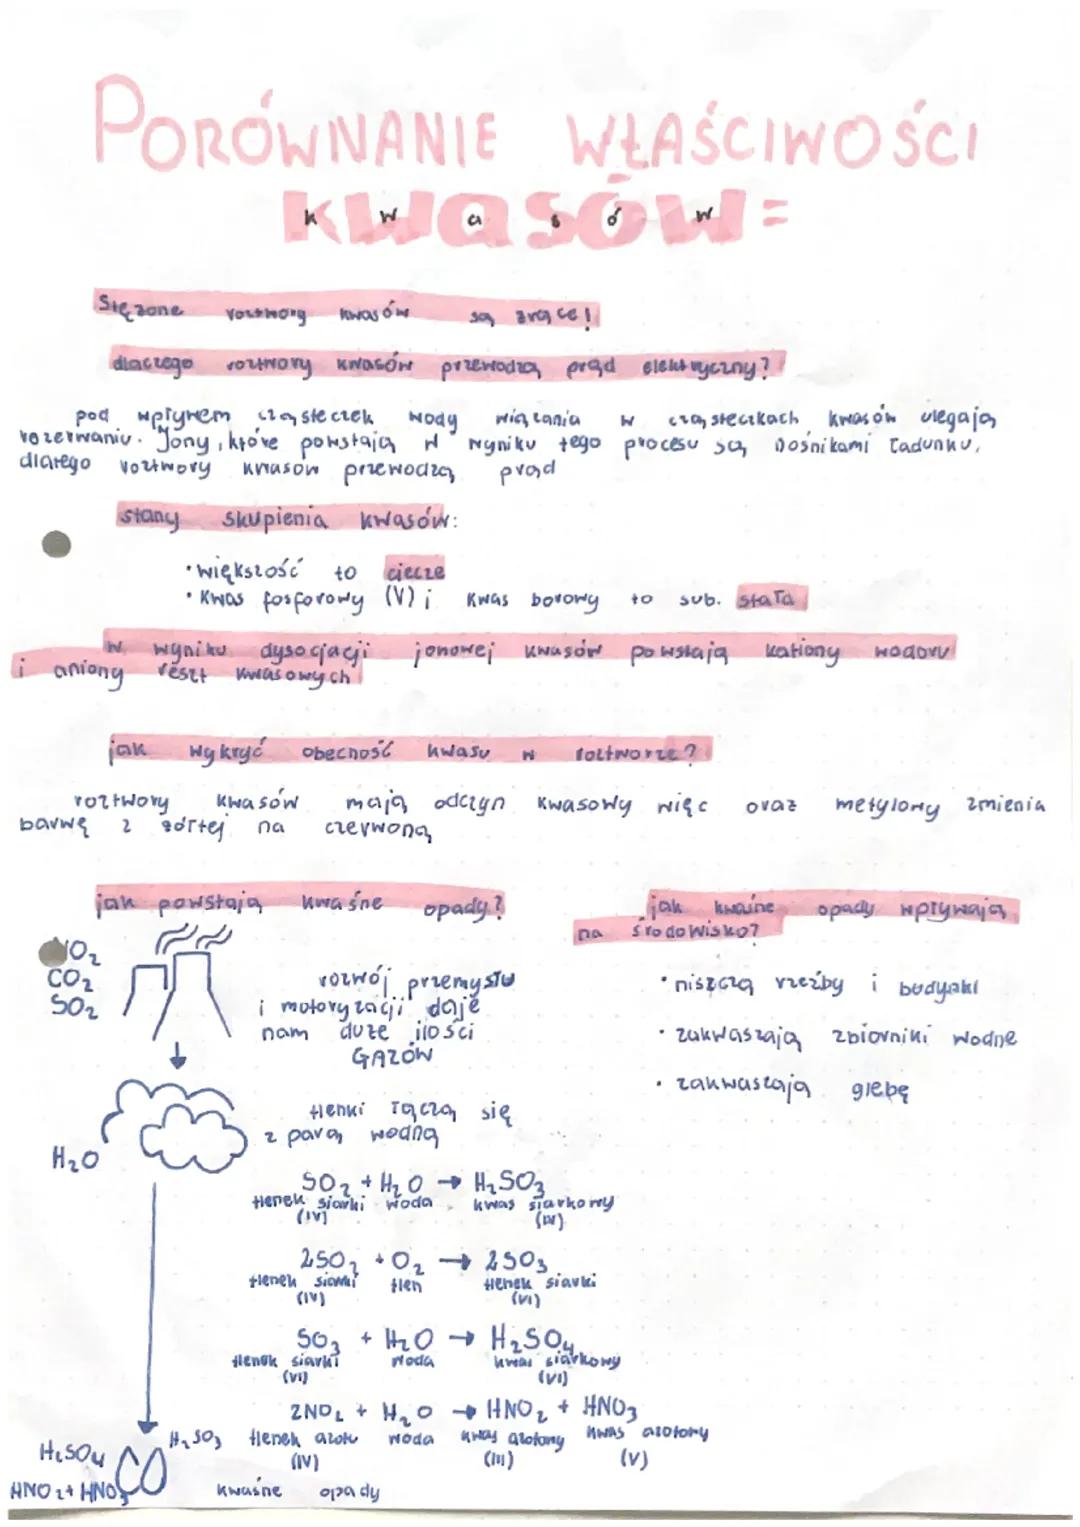 PORÓWNANIE WŁAŚCIWOŚCI
kwasów=
k w a s ó w
Stężone roztwory kwasów są żrące!
dlaczego roztwory kwasów przewodzą prąd elektryczny?
pod wpływem cząsteczek wody wiązania w cząsteczkach kwasów ulegają
rozerwaniu. Jony, które powstają w wyniku tego procesu są nośnikami ładunku,
dlatego roztwory kwasów przewodzą prąd
stany skupienia kwasów:
• większość to ciecze
• kwas fosforowy (V) i kwas borowy to sub. stała
w wyniku dysocjacji jonowej kwasów powstają kationy wodoru
i aniony reszt kwasowych
jak wykryć obecność kwasu w roztworze?
roztwory kwasów mają odczyn kwasowy więc oraz metylowy zmienia
barwę z żółtej na czerwoną
jak powstają kwaśne opady?
NO₂
CO₂
SO₂
rozwój przemysłu
i motoryzacji daje
nam duże ilości
GAZÓW
tlenki łączą się
z parą wodną
H₂O
SO₂ + H₂O → H₂SO₃
tlenek siarki woda kwas siarkowy
(IV) (IV)
2SO₂ + O₂ → 2SO₃
tlenek siarki tlen tlenek siarki
(IV) (VI)
SO₃ + H₂O → H₂SO₄
tlenek siarki woda kwas siarkowy
(VI) (VI)
2NO₂ + H₂O → HNO₂ + HNO₃
tlenek azotu woda kwas azotowy kwas azotowy
(IV) (III) (V)
H₂SO₄ H₂SO₃
HNO₂+HNO₃
kwaśne opady
jak kwaśne opady wpływają
na środowisko?
• niszczą rzeźby i budynki
• zakwaszają zbiorniki wodne
• zakwaszają glebę